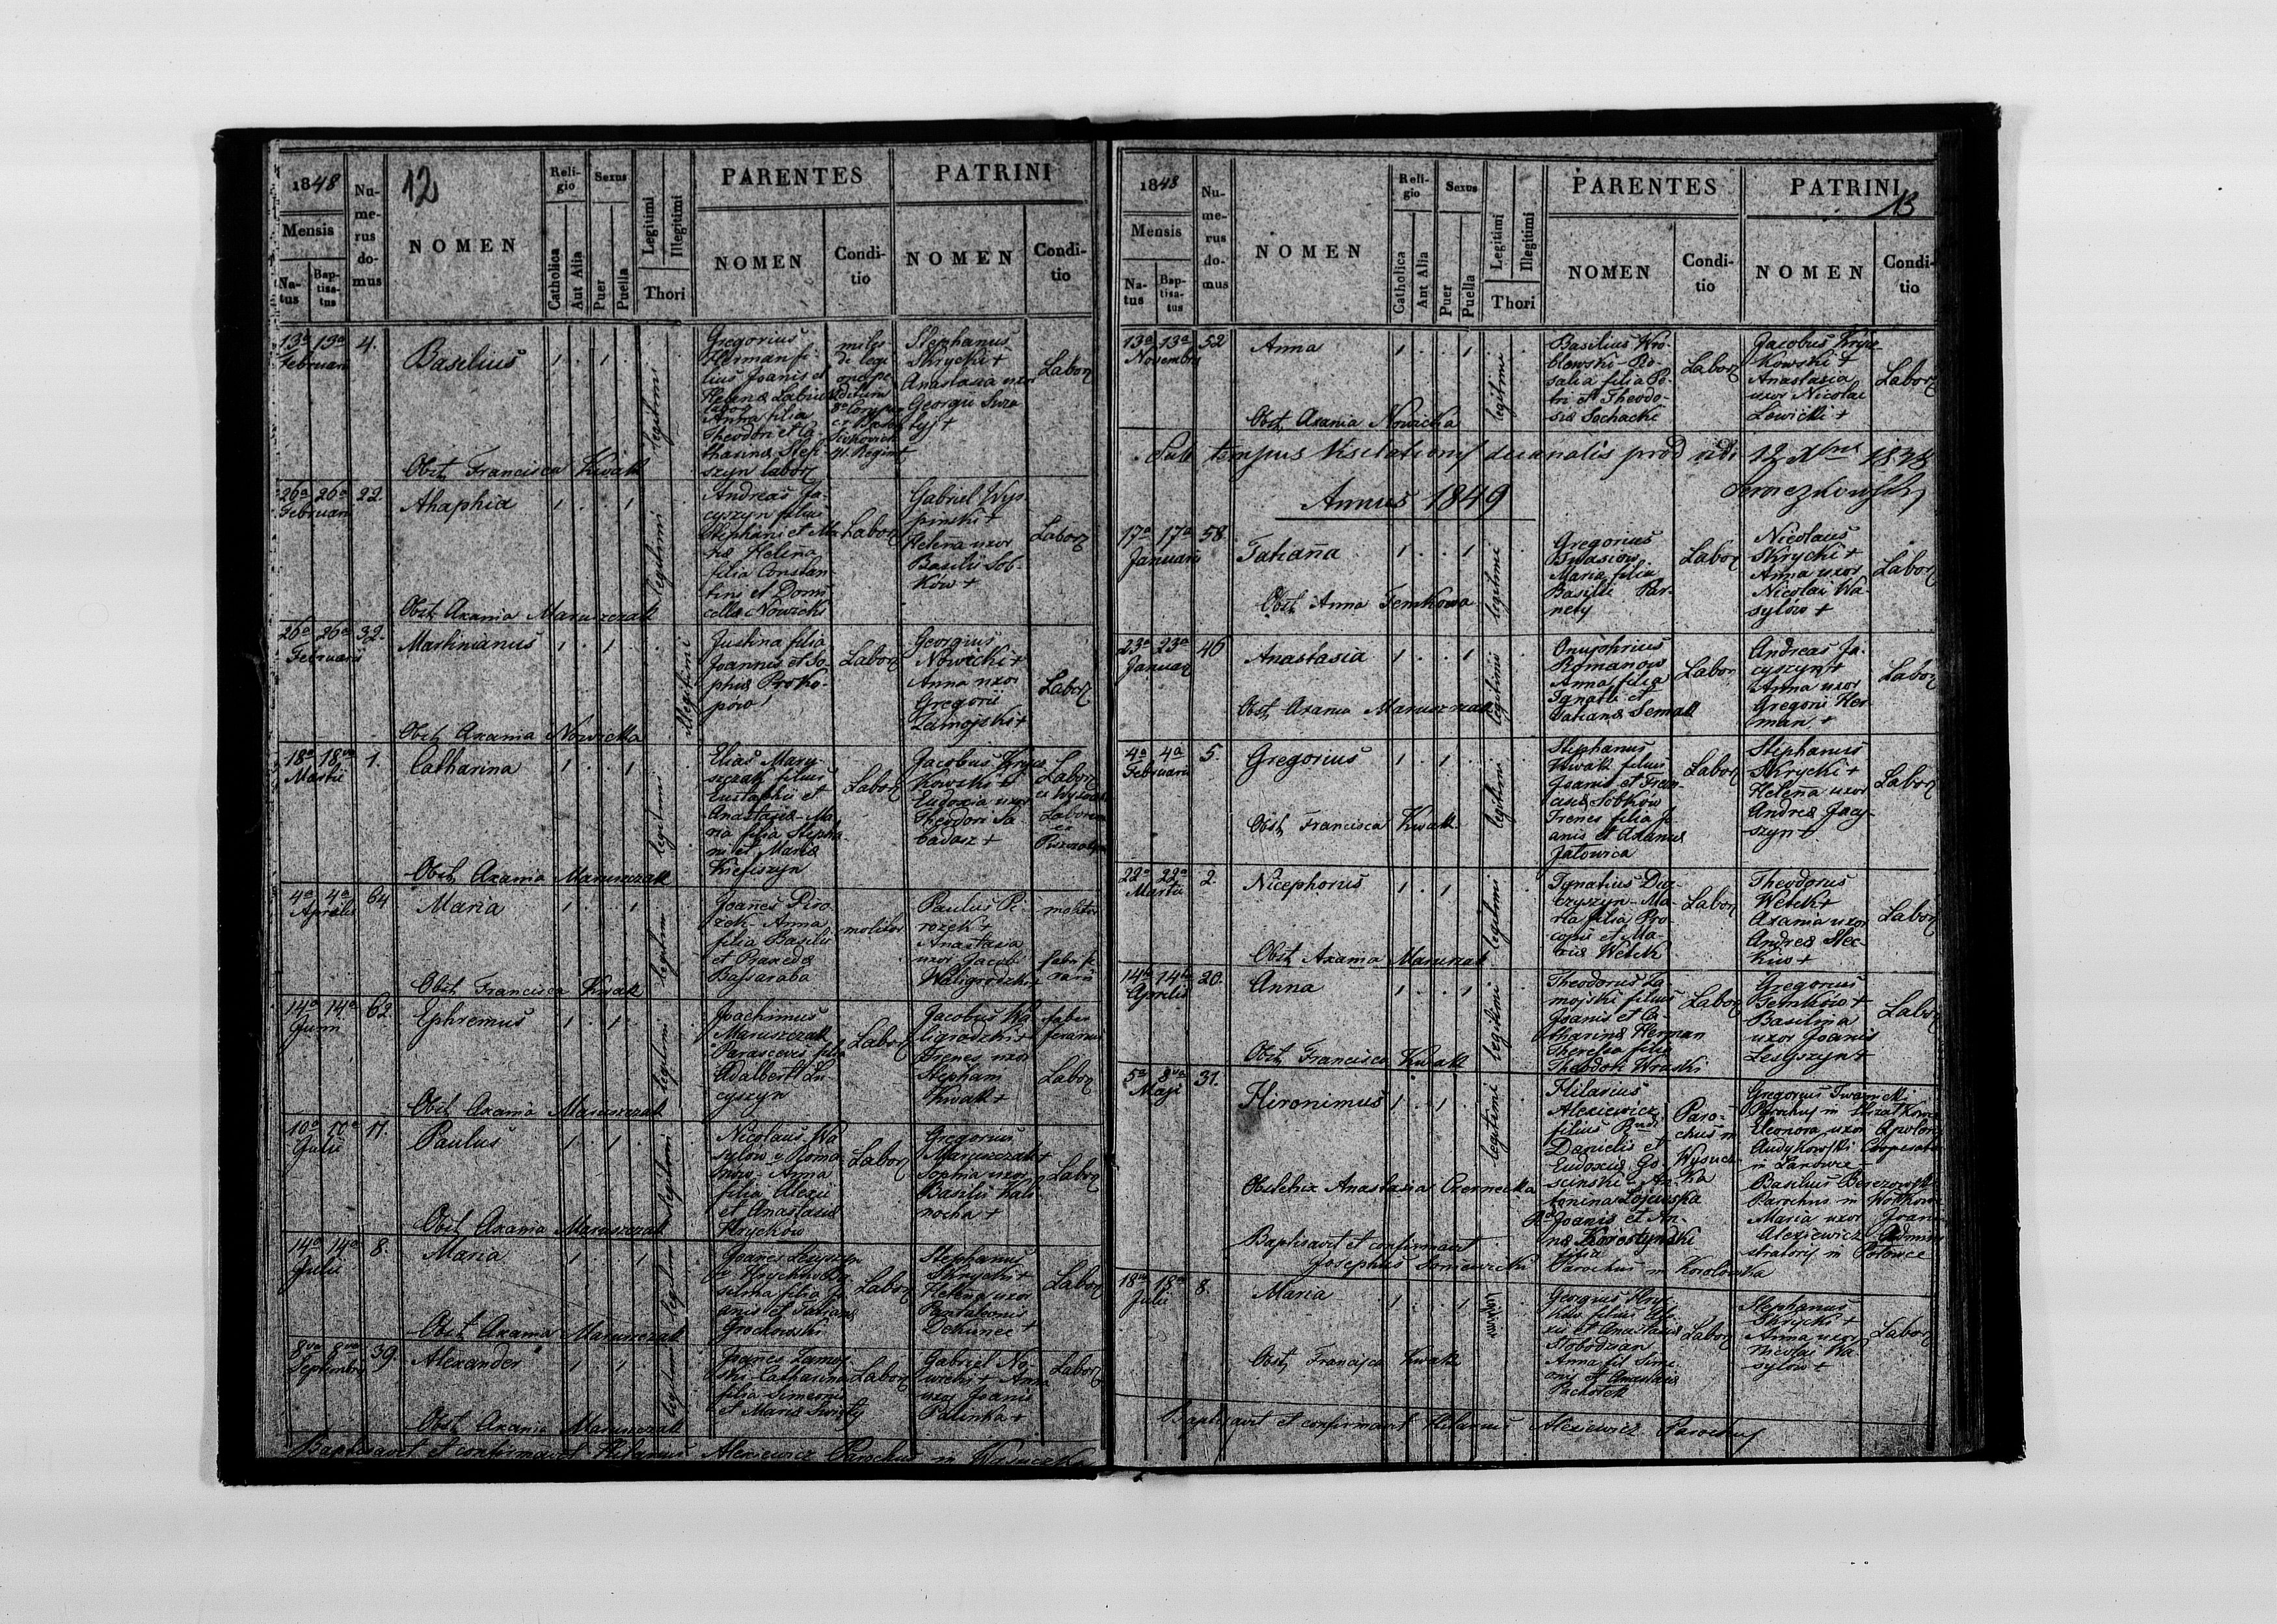 1848
Mensis
Na-
tus
Bap-
tisa-
tus
Nu-
me-
rus
do-
mus
12
NOMEN
Reli-
gio
Catholica
Aut Alia
Sexus
Puer
Puella
Legitimi
Illegitimi
Thori
PARENTES
NOMEN
Condi-
tio
PATRINI
NOMEN
Condi-
tio
13a 13a 4.
Februarii
Basilius
1 . 1 .
legitimi
Gregorius
Herman fi-
lius Joanis et
Helena
labor
Anna filia
Theodori et Ca-
tharina Stefi-
szyn labor
miles
de legi
one
Stephanus
Skrycki +
Anastasia uxor
Georgii
Labor
Obst. Francisca Kwak
26a 26a 22.
Februarii
Ahaphia
1 . . 1
legitimi
Andreas Ja-
cyszyn filius
Stephani et Ma-
ria Helena
filia Constan-
tini et Domi-
cella Nowicki
Labor
Gabriel Wys-
pinski +
Helena uxor
Basilii Sob-
ków +
Labor
Obst. Axania Maruszczak
26a 26a 32.
Februarii
Martinianus
1 . 1 .
illegitimi
Justina filia
Joannis et So-
phia Proko-
pów
Labor
Georgius
Nowicki +
Anna uxor
Gregorii
Zamojski +
Labor
Obst. Axania Nowicka
18a 18va 1.
Martii
Catharina
1 . . 1
legitimi
Elias Maru-
szczak filius
Eustaphii et
Anastasia - Ma-
ria filia Stepha-
ni et Maria
Kiefiszyn
Labor
Jacobus Kryco
Kowski +
Eudoxia uxor
Theodori Sa-
badasz +
Labor
Obst. Axania Maruszczak
4a 4a 64
Aprilis
Maria
1 . . 1
legitimi
Joanes Piro-
zek Anna
filia Basilii
et Praxeda
Bassaraba
molitor
Paulus Pi-
rozek +
Anastasia
uxor Jacobi
Waligrodzki
molitor
fabri fe
rarii
Obst. Francisca Kwak
14a 14a 62
Junii
Ephremus
1 . 1 .
legitimi
Joachimus
Maruszczak
Parascevis filia
Adalberti Lu-
cyszyn
Labor
Jacobus Wa-
ligrodzki +
Irenes uxor
Stephani
Kwak +
faber
ferarius
Labor
Obst. Axania Maruszczak
10a 10a 17.
Julii
Paulus
1 . 1 .
legitimi
Nicolaus Wa-
sylow v Roma-
now - Anna
filia Alexii
et Anastasia
Hryckow
Labor
Gregorius
Maruszczak +
Sophia uxor
Basilii Kali-
nocha +
Labor
Obst. Axania Maruszczak
14a 14a 8.
Julii
Maria
1 . . 1
legitimi
Joanes Lesyszyn
silina filia Jo-
anis et Tatiana
Grochowski
Labor
Stephanus
Skrycki +
Helena uxor
Pantaleonis
Dekunec +
Labor
Obst. Axania Maruszczak
8va 8va 39.
Septembris
Alexander
1 . 1 .
legitimi
Joanes Zamoj-
ski - Catharina
filia Simeonis
et Maria Swisty
Labor
Gabriel No-
wicki + Anna
uxor Joanis
Palinka +
Labor
Obst. Axania Maruszczak
Baptisavit et confirmavit Hilarius Alexiewicz Parochus in Wysuczka
1848
Mensis
Na-
tus
Bap-
tisa-
tus
Nu-
me-
rus
do-
mus
NOMEN
Reli-
gio
Catholica
Aut Alia
Sexus
Puer
Puella
Legitimi
Illegitimi
Thori
PARENTES
NOMEN
Condi-
tio
PATRINI
13
NOMEN
Condi-
tio
13a 13a 52
Novembris
Anna
1 . . 1
legitimi
Basilius Wro-
blewski - Ro-
salia filia Pe-
tri et Theodo-
sia Sochacki
Labor
Jacobus Kryco-
Kowski +
Anastasia
uxor Nicolai
Lewicki +
Labor
Obst. Axania Nowicka
Sub tempus Visitationis decanalis prod
Annus 1849
17a 17a 58.
Januarii
Tatiana
1 . . 1
legitimi
Gregorius
Iwasiow
Maria filia
Basilii Par-
nety
Labor
Nicolaus
Skrycki +
Anna uxor
Nicolai Wa-
sylów +
Labor
Obst. Anna Femkowa
23a 23a 46
Januar
Anastasia
1 . . 1
legitimi
Onuphrius
Romanow
Anna filia
Ignatii et
Tatiana Semak
Labor
Andreas Ja-
cyszyn +
Anna uxor
Gregorii Her-
man +
Labor
Obst. Axania Maruszczak
4a 4a 5.
Februarii
Gregorius
1 . 1 .
legitimi
Stephanus
Kwak filius
Joanis et Fran-
cisca Sobków
Irenes filia Jo-
anis et Axania
Jatowica
Labor
Stephanus
Skrycki +
Helena uxor
Andrea Jacy-
szyn +
Labor
Obst. Francisca Kwak
22a 22a 2.
Martii
Nicephorus
1 . 1 .
legitimi
Ignatius Dia-
czyszyn - Ma-
ria filia Pro-
copii et Ma-
ria Wetek
Labor
Theodorus
Wetek +
Axania uxor
Andrea Stec-
kiw +
Labor
Obst. Axania Maruszczak
14ta 14ta 20.
Aprilis
Anna
1 . . 1
legitimi
Theodorus Za-
mojski filius
Joanis et Ca-
tharina Herman
Theresia filia
Theodori Wraski
Labor
Gregorius
Temków +
Basilina
uxor Joanis
Lesyszyn +
Labor
Obst. Francisca Kwak
5a 8va 31.
Maji
Hironimus
1 . 1 .
legitimi
Hilarius
Alexiewicz
filius Rndi
Danielis et
Eudoxia Go-
scinski - An-
tonina Lojewska
Rndi Joanis et An-
na Korostynski
filia
Paro-
chus in
Wysucz-
Ka
Gregorius Iwanicki
Parochus in
Eleonora uxor Apolon
Audykowski Cooperat
in Lanowce -
Basilius Berezowski
Parochus in Wolkowce
Maria uxor Joan
Alexiewicz Admini
stratoris in Potowce
Obstetrix Anastasia Czernecka
Baptisavit et confirmavit
Josephus Soniewicki Parochus in Korolowka
18va 18va 8.
Julii
Maria
1 . . 1
legitimi
Georgius Hry-
kiw filius Ale-
xii et Anastasia
Slobodzian
Anna fil Sime-
onis et Anastasia
Pachotek
Labor
Stephanus
Skrycki +
Anna uxor
Nicolai Wa-
sylow +
Labor
Obst. Francisca Kwak
Baptisavit et confirmavit Hilarius Alexiewicz Parochus